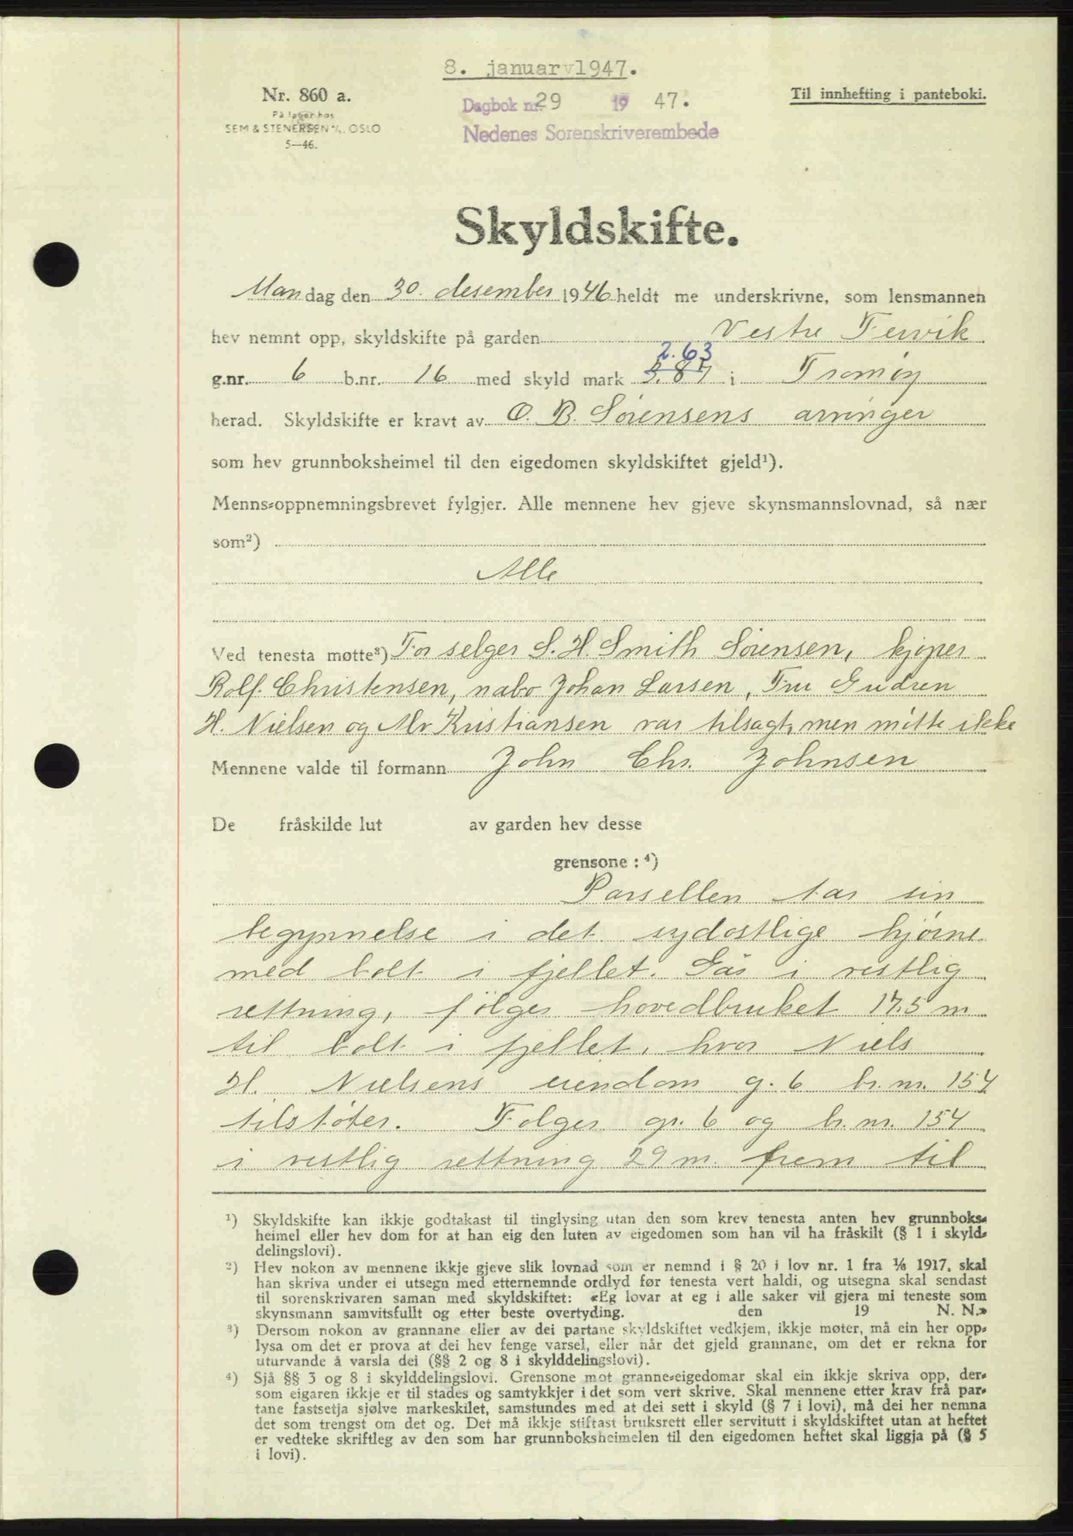 8. januar 1947.
Nr. 860 a.
På lager hos
SEM & STENERSEN A/S, OSLO
5—46.
Dagbok nr. 29 1947.
Nedenes Sorenskriverembede
Til innhefting i panteboki.
Skyldskifte.
Mandag den 30. desember 1946 heldt me underskrivne, som lensmannen
hev nemnt opp, skyldskifte på garden Vestre Fervik
2.63
g.nr. 6 b.nr. 16 med skyld mark 3.87 i Tromøy
herad. Skyldskifte er kravt av O. B. Sørensens arvinger
som hev grunnboksheimel til den eigedomen skyldskiftet gjeld¹).
Menns-oppnemningsbrevet fylgjer. Alle mennene hev gjeve skynsmannslovnad, så nær
som²)
Alle
Ved tenesta møtte³) For selger S. H. Smith Sørensen, kjøper
Rolf. Christensen, nabo Johan Larsen, Fru Gudrun
H. Nielsen og Alv Kristiansen var tilsagt, men møtte ikke
Mennene valde til formann John Chr. Johnsen
De fråskilde lut av garden hev desse
grensone : ⁴)
Parsellen tar sin
begynnelse i det sydøstlige hjørne
med bolt i fjellet. Går i vestlig
rettning, følger hovedbruket 17.5 m
til bolt i fjellet, hvor Niels
H. Nielsens eiendom g. 6 br. nr. 154
tilstøter. Følger gr. 6 og br. nr. 154
i vestlig rettning 29 m. frem til
¹) Skyldskifte kan ikkje godtakast til tinglysing utan den som krev tenesta anten hev grunnboks-
heimel eller hev dom for at han eig den luten av eigedomen som han vil ha fråskilt (§ 1 i skyld-
delingslovi).
²) Hev nokon av mennene ikkje gjeve slik lovnad som er nemnd i § 20 i lov nr. 1 fra 1/6 1917, skal
han skriva under ei utsegn med etternemnde ordlyd før tenesta vert haldi, og utsegna skal sendast
til sorenskrivaren saman med skyldskiftet: «Eg lovar at eg i alle saker vil gjera mi teneste som
skynsmann samvitsfullt og etter beste overtyding. den 19 N. N.»
³) Dersom nokon av grannane eller av dei partane skyldskiftet vedkjem, ikkje møter, må ein her opp-
lysa om det er prova at dei hev fenge varsel, eller når det gjeld grannane, om det er rekna for
uturvande å varsla dei (§§ 2 og 8 i skylddelingslovi).
⁴) Sjå §§ 3 og 8 i skylddelingslovi. Grensone mot granne-eigedomar skal ein ikkje skriva opp, der-
som eigaren ikkje er til stades og samtykkjer i det som vert skrive. Skal mennene etter krav frå par-
tane fastsetja sjølve markeskilet, samstundes med at dei sett i skyld (§ 7 i lovi), må dei her nemna
det som trengst om det og. Det må ikkje stiftast bruksrett eller servitutt i skyldskiftet utan at heftet
er vedteke skriftleg av den som har grunnboksheimelen til den eigedomen heftet skal liggja på (§ 5
i lovi).